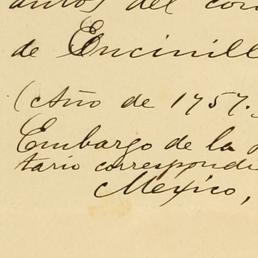 del con
de Encinill
(Año de 1757.
Embargo de la
tario corresponde
Mexico,